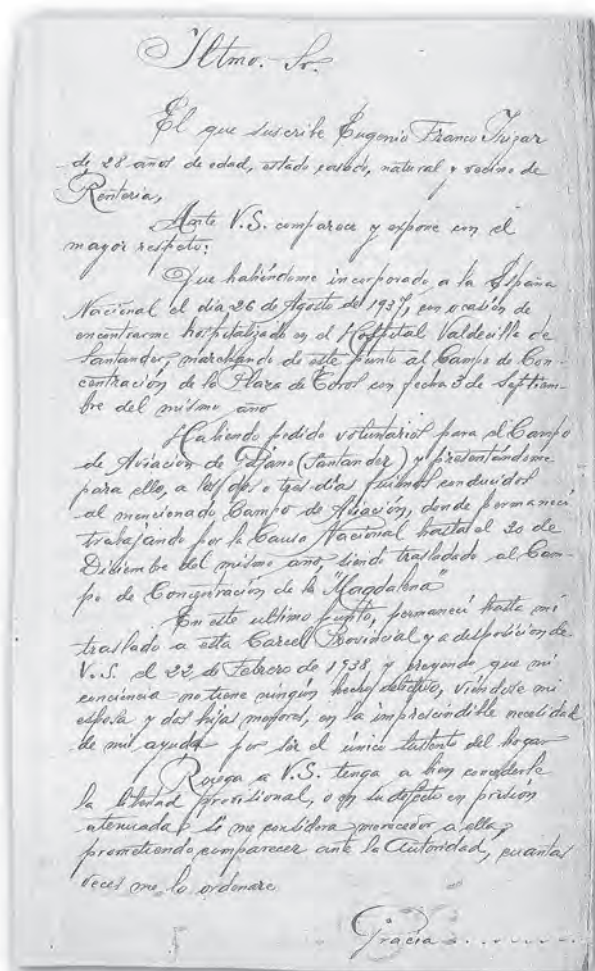 Iltmo. Sr.
El que suscribe Eugenio Franco
de 28 años de edad, estado casado, natural y vecino de
Rentería,
Ante V.S. comparece y expone con el
mayor respeto:
Que habiéndome incorporado a la España
Nacional el día 26 de Agosto del 1937, con ocasión de
encontrarme hospitalizado en el Hospital Valdecilla de
Santander, marchando de este punto al Campo de Con-
centración de la Plaza de Toros con fecha 3 de Septiem-
bre del mismo año
Habiendo pedido voluntarios para el Campo
de Aviación de Pájano (Santander) y presentándome
para ello, a los dos o tres días fuimos conducidos
al mencionado Campo de Aviación, donde permanecí
trabajando por la Causa Nacional hasta el 20 de
Diciembre del mismo año, siendo trasladado al Cam-
po de Concentración de la "Magdalena"
En este ultimo punto, permanecí hasta mi
traslado a esta Carcel Provincial y a disposición de
V.S. el 22 de Febrero de 1938 y creyendo que mi
conciencia no tiene ningún hecho delictivo, viéndose mi
esposa y dos hijas menores, en la imprescindible necesidad
de mi ayuda por ser el único sustento del hogar
Ruega a V.S. tenga a bien concederle
la libertad provisional, o en su defecto en prisión
atenuada si me considera merecedor a ella,
prometiendo comparecer ante la Autoridad, cuantas
veces me lo ordenare
Gracia........